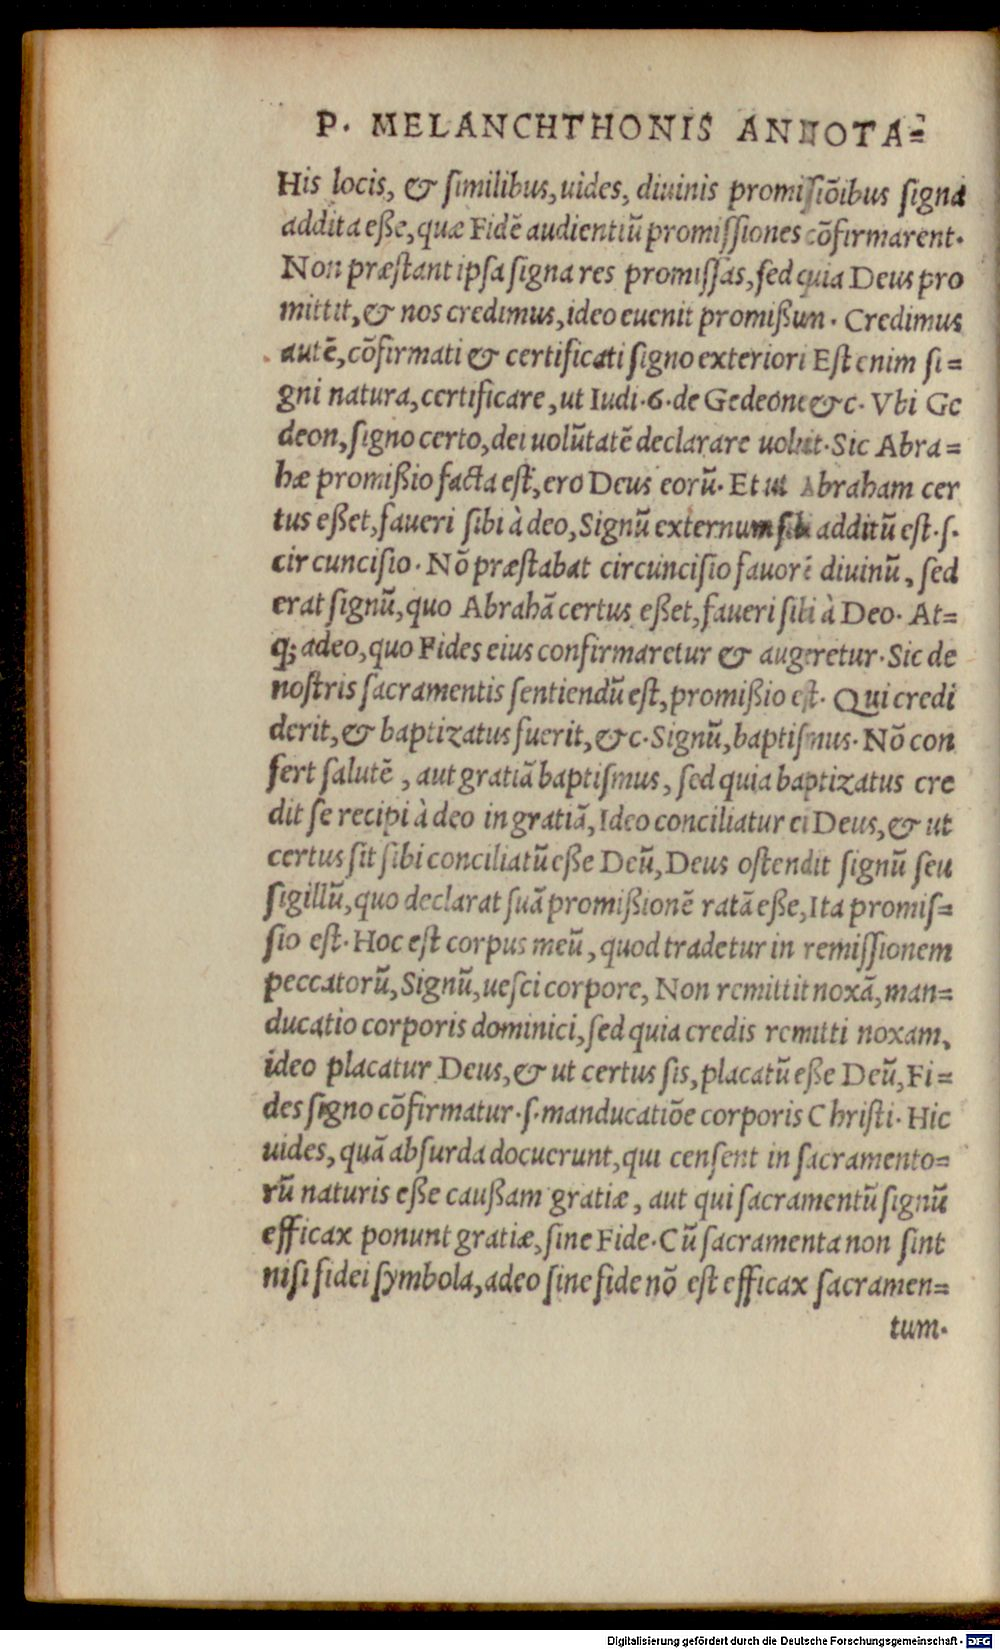 P. MELANCHTHONIS ANNOTA⸗
His locis, & ſimilibus, uides, diuinis promiſſiōibus ſigna
addita eße, quæ Fidē audientiū promiſſiones cōfirmarent.
Non præſtant ipſa ſigna res promiſſas, ſed quia Deus pro
mittit, & nos credimus, ideo euenit promißum. Credimus
autē, cōfirmati & certificati ſigno exteriori Eſt enim ſi⸗
gni natura, certificare, ut Iudi. 6. de Gedeone &c. Vbi Ge
deon, ſigno certo, dei uolūtatē declarare uoluit. Sic Abra⸗
hæ promißio facta eſt, ero Deus eorū. Et ut Abraham cer
tus eßet, faueri ſibi à deo, Signū externum ſibi additū eſt. ſ.
circunciſio. Nō præſtabat circunciſio fauorē diuinū, ſed
erat ſignū, quo Abrahā certus eßet, faueri ſibi à Deo. At⸗
q; adeo, quo Fides eius confirmaretur & augeretur. Sic de
noſtris ſacramentis ſentiendū eſt, promißio eſt. Qui credi
derit, & baptizatus fuerit, &c. Signū, baptiſmus. Nō con
fert ſalutē, aut gratiā baptiſmus, ſed quia baptizatus cre
dit ſe recipi à deo in gratiā, Ideo conciliatur ei Deus, & ut
certus ſit ſibi conciliatū eße Deū, Deus oſtendit ſignū ſeu
ſigillū, quo declarat ſuā promißionē ratā eße, Ita promiſ⸗
ſio eſt. Hoc eſt corpus meū, quod tradetur in remiſſionem
peccatorū, Signū, ueſci corpore, Non remittit noxā, man⸗
ducatio corporis dominici, ſed quia credis remitti noxam,
ideo placatur Deus, & ut certus ſis, placatū eße Deū, Fi⸗
des ſigno cōfirmatur. ſ. manducatiōe corporis Chriſti. Hic
uides, quā abſurda docuerunt, qui cenſent in ſacramento⸗
rū naturis eße caußam gratiæ, aut qui ſacramentū ſignū
efficax ponunt gratiæ, ſine Fide. Cū ſacramenta non ſint
niſi fidei ſymbola, adeo ſine fide nō eſt efficax ſacramen⸗
tum.
Digitalisierung gefördert durch die Deutsche Forschungsgemeinschaft - DFG